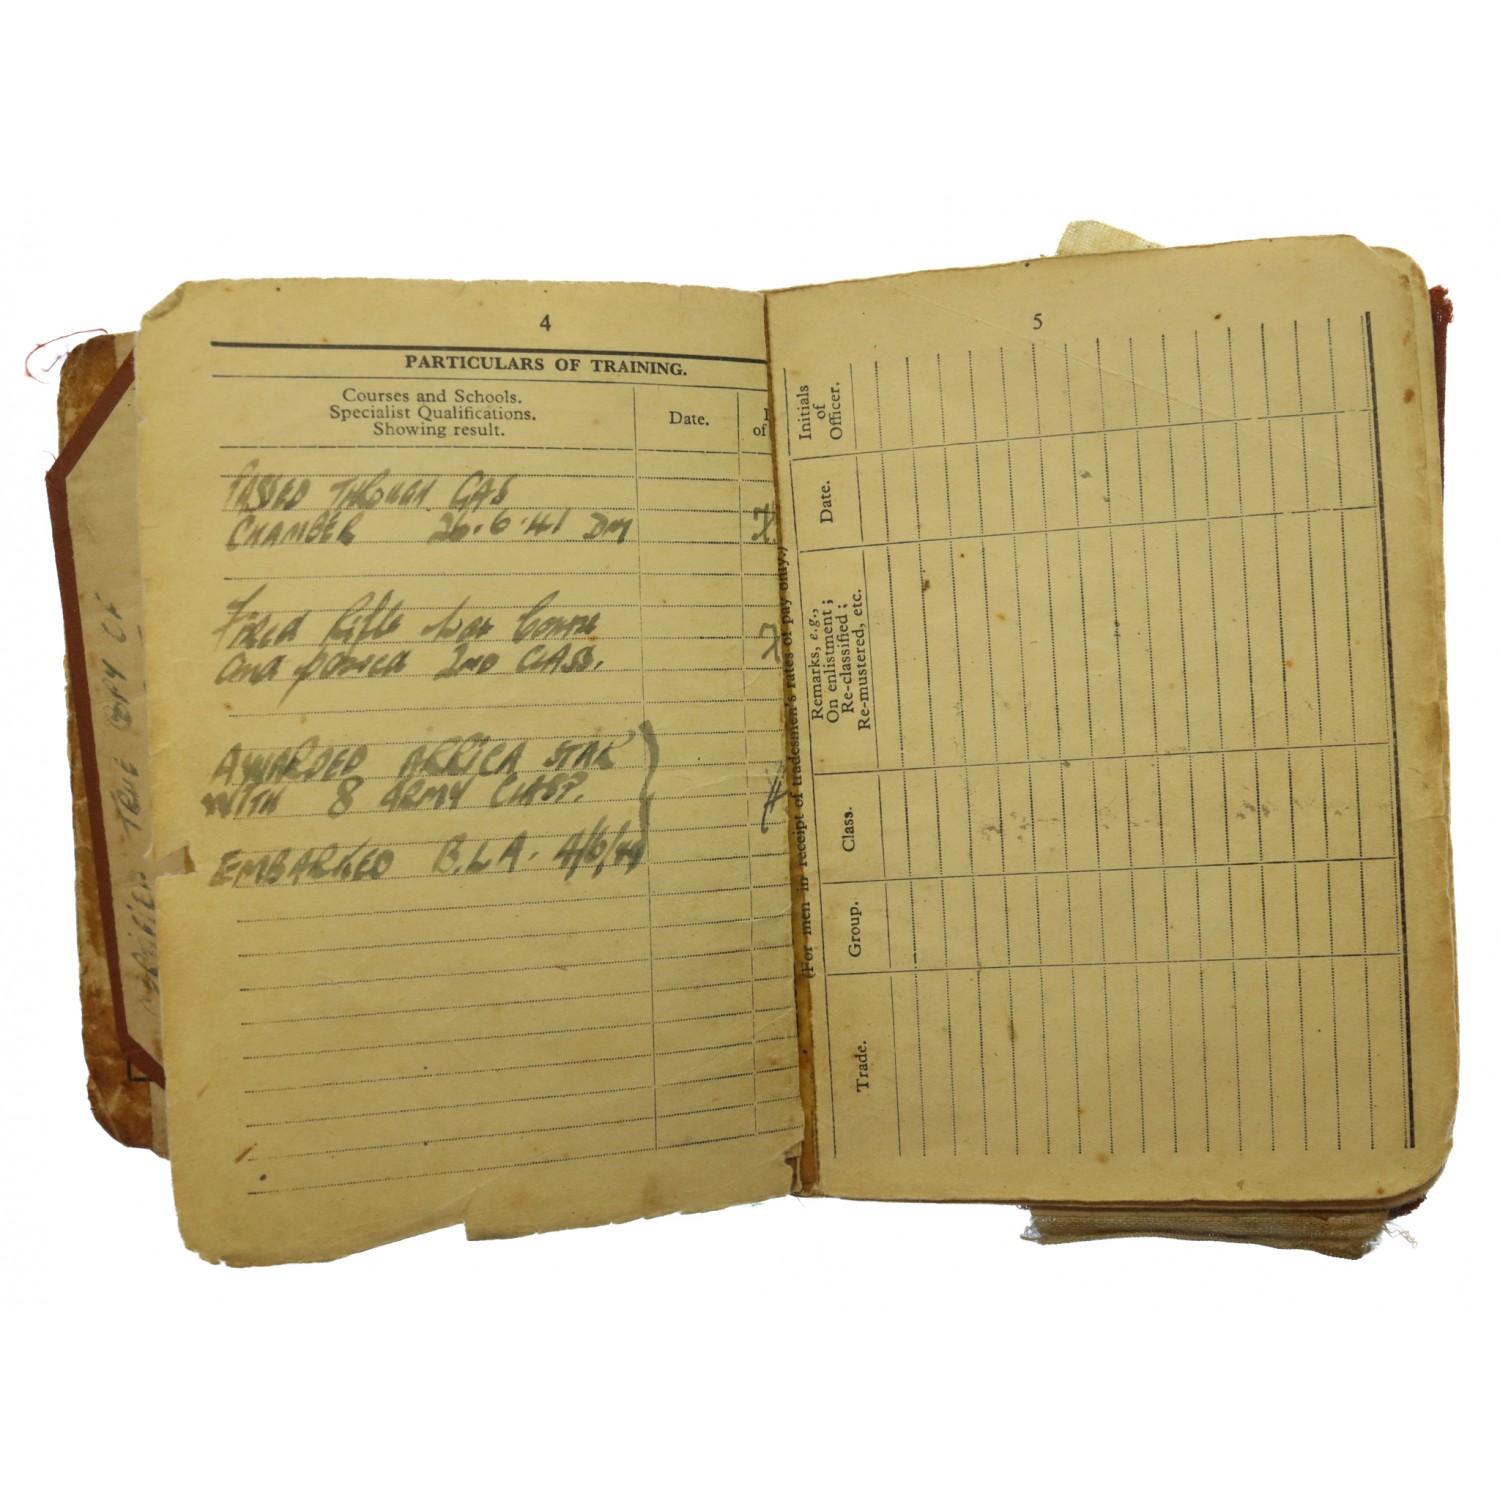 4
PARTICULARS OF TRAINING.
Courses and Schools.
Specialist Qualifications.
Showing result.
Date.
I
of
PASSED THROUGH GAS
CHAMBER 26.6.41 DM
Fired Rifle War Course
and passed 2ND CLASS.
AWARDED AFRICA STAR
WITH 8 ARMY CLASP.
EMBARKED B.L.A. 4/6/44
TRUE COPY OF
5
(For men in receipt of tradesmen's rates of pay only.)
Trade.
Group.
Class.
Remarks, e.g.,
On enlistment;
Re-classified;
Re-mustered, etc.
Date.
Initials
of
Officer.